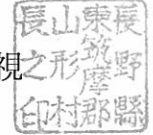 視
長野縣
東筑摩郡
山形村
長之印